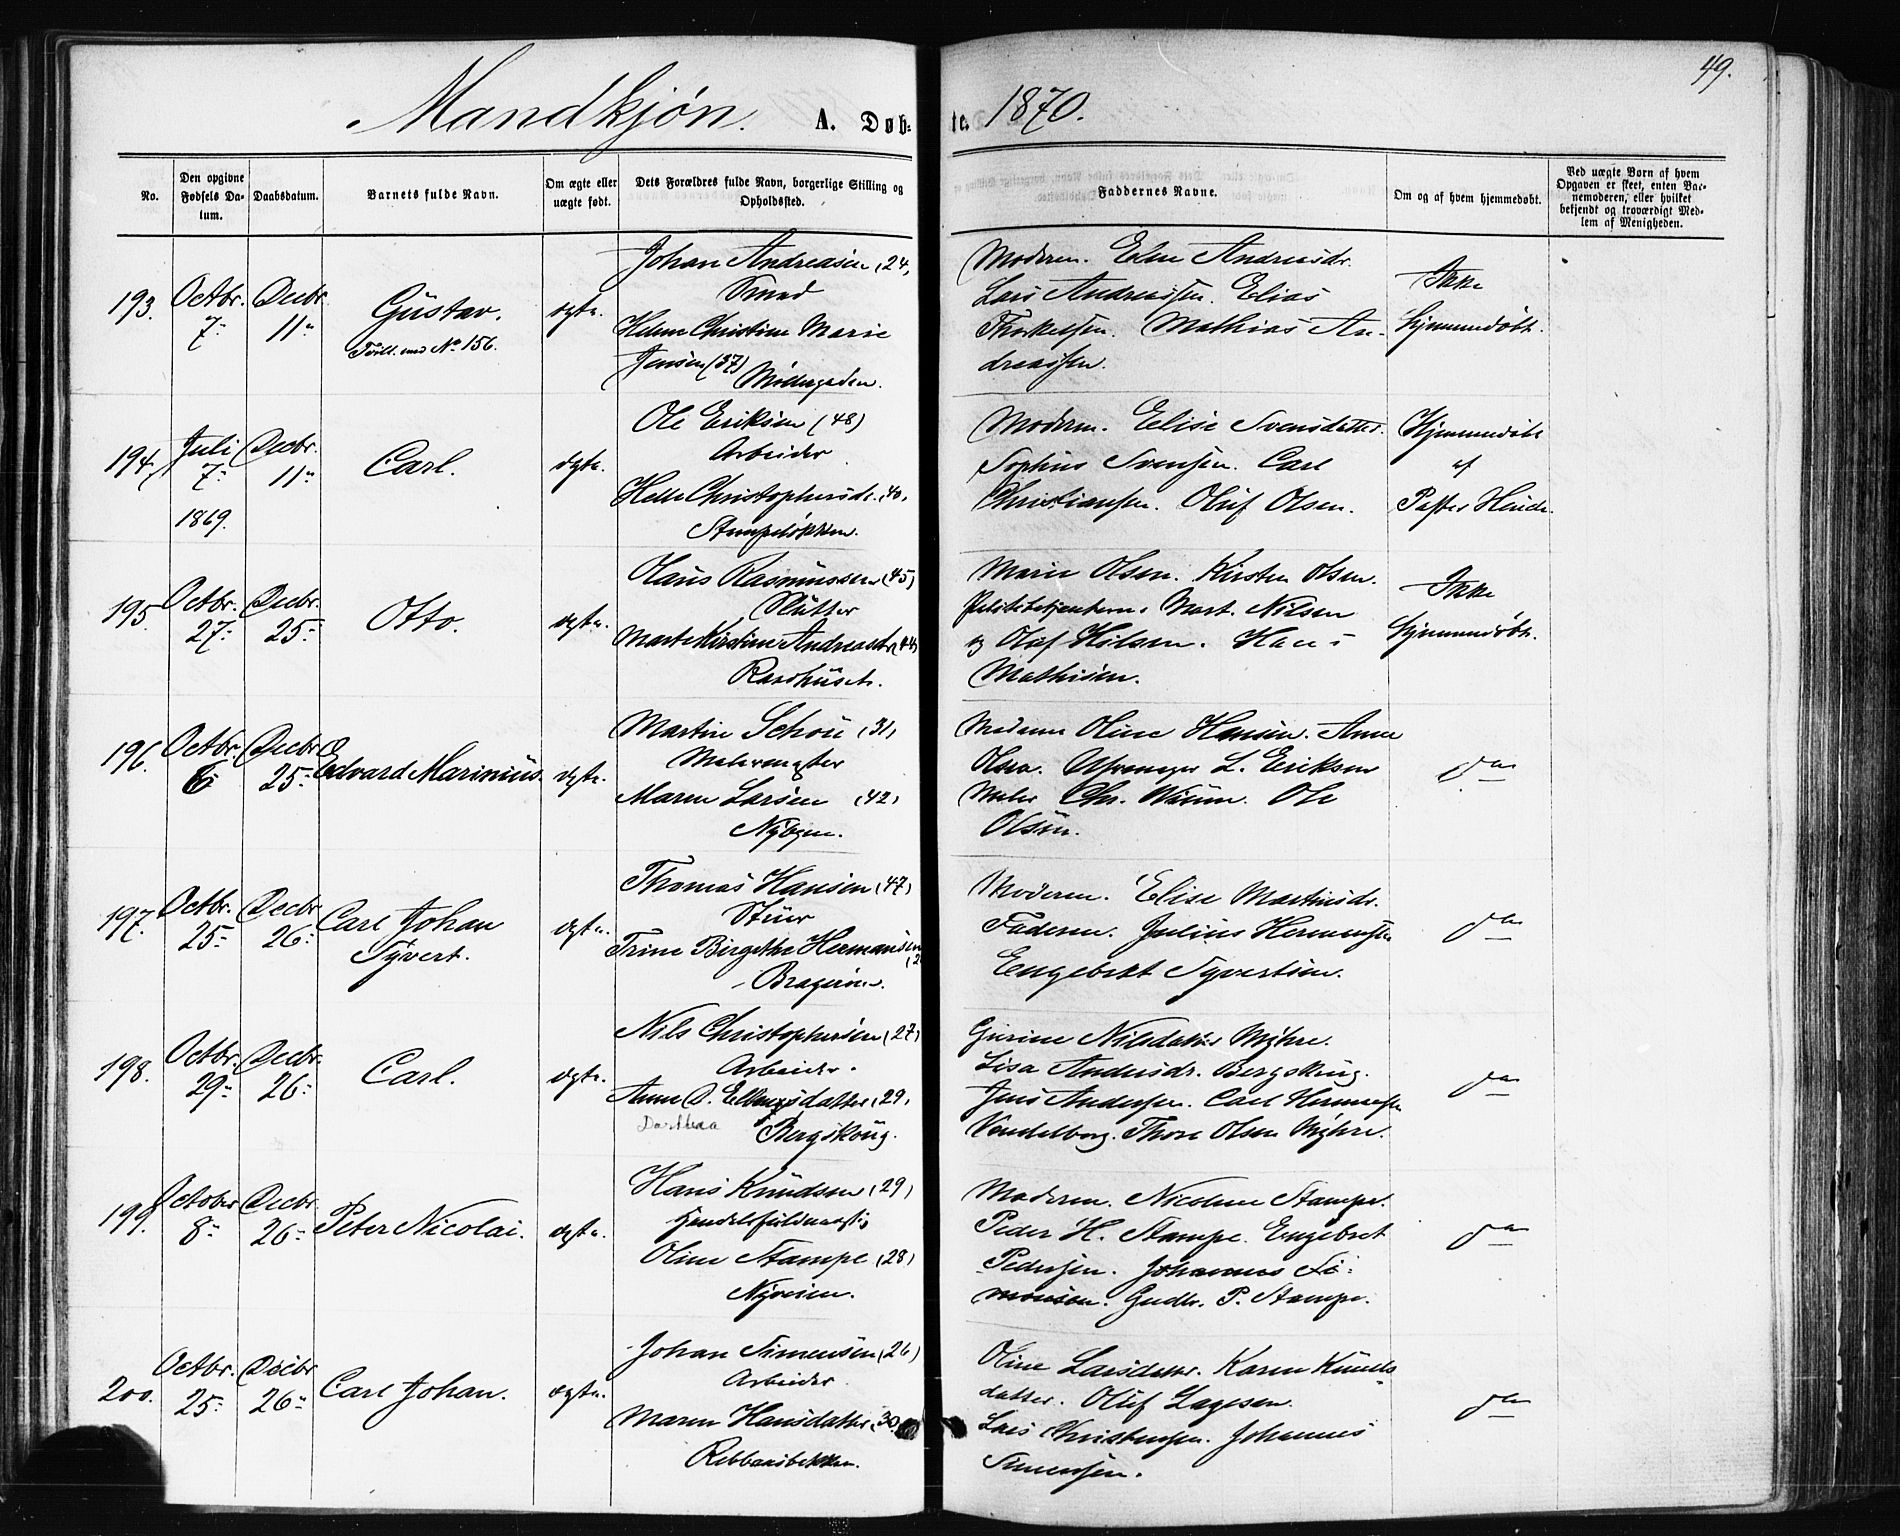 49.
Mandkjøn. A. Døb-te. 1870.
No. | Den opgivne Fødsels Datum. | Daabsdatum. | Barnets fulde Navn. | Om ægte eller uægte født. | Dets Forældres fulde Navn, borgerlige Stilling og Opholdssted. | Faddernes Navne. | Om og af hvem hjemmedøbt. | Ved uægte Børn af hvem Opgaven er skeet, enten Barnemoderen, eller hvilket bekjendt og troværdigt Medlem af Menigheden.
193. Octbr. 7. Decbr. 11. Gustav. ægte.
Tvill. med No 156.
Johan Andreasen (24)
Smed
Helene Christine Marie
Jensen (37)
Moderen. Eline Andreasdr.
Lars Andreassen. Elias
Thorkelsen. Mathias An-
dreassen.
Ikke
hjemmedøbt.
194. Juli 7. 1869. Decbr. 11. Carl. ægte.
Ole Eriksen (48)
Arbeider
Helle Christophersdr. (40)
Stampeløkken.
Moderen. Elise Svensdatter.
Sophus Svensen. Carl
Christiansen. Oluf Olsen.
Hjemmedøbt
af
Pastor
195. Octbr. 27. Decbr. 25. Otto. ægte.
Hans Rasmussen (45)
Slutter
Marte Kirstine Andreasdr. (44)
Raadhuset.
Marie Olsen. Kirsten Olsen.
Politibetjenterne Mart. Nilsen
og Olaf Hilsen. Hans
Mathisen.
Ikke
hjemmedøbt.
196. Octbr. 6. Decbr. 25. Edvard Marinius. ægte.
Martin Schou (31)
Malermester
Maren Larsen (42)
Nybyen.
Moderen Oline Hansen. Anne
Olsen. L. Eriksen
Maler Chr. Ole
Olsen.
do
197. Octbr. 25. Decbr. 26. Carl Johan
Syvert. ægte.
Thomas Hansen (47)
Trine Birgithe Hermansen
Bragerøen.
Moderen. Elise Martinsdr.
Faderen. Julius Hermansen
Engebret Syvertsen.
do
198. Octbr. 29. Decbr. 26. Carl. ægte.
Nils Christophersen (27)
Arbeider.
Anne D. Ellingsdatter (29)
Dorthea
Bergskoug.
Gurine Nilsdatter Myhre.
Lisa Andersdr. Bergskoug.
Jens Andersen. Carl Hermansen
Vendelborg. Thore Olsen Myhre.
do
199. October 8. Decbr. 26. Peter Nicolai. ægte.
Hans Knudsen (29)
Handelsfuldmægtig
Oline Stampe (28)
Nyveien.
Moderen. Nicoline Stampe.
Peder H. Stampe. Engebret
Pedersen. Johannes Si-
monsen. Gudbr. P. Stampe.
do
200. Octbr. 25. Decbr. 26. Carl Johan. ægte.
Johan Simensen (26)
Arbeider
Maren Hansdatter (30)
Rebbansbakken.
Oline Larsdatter. Karen Knuds-
datter. Oluf Lagesen.
Lars Christensen. Johannes
Simensen.
do